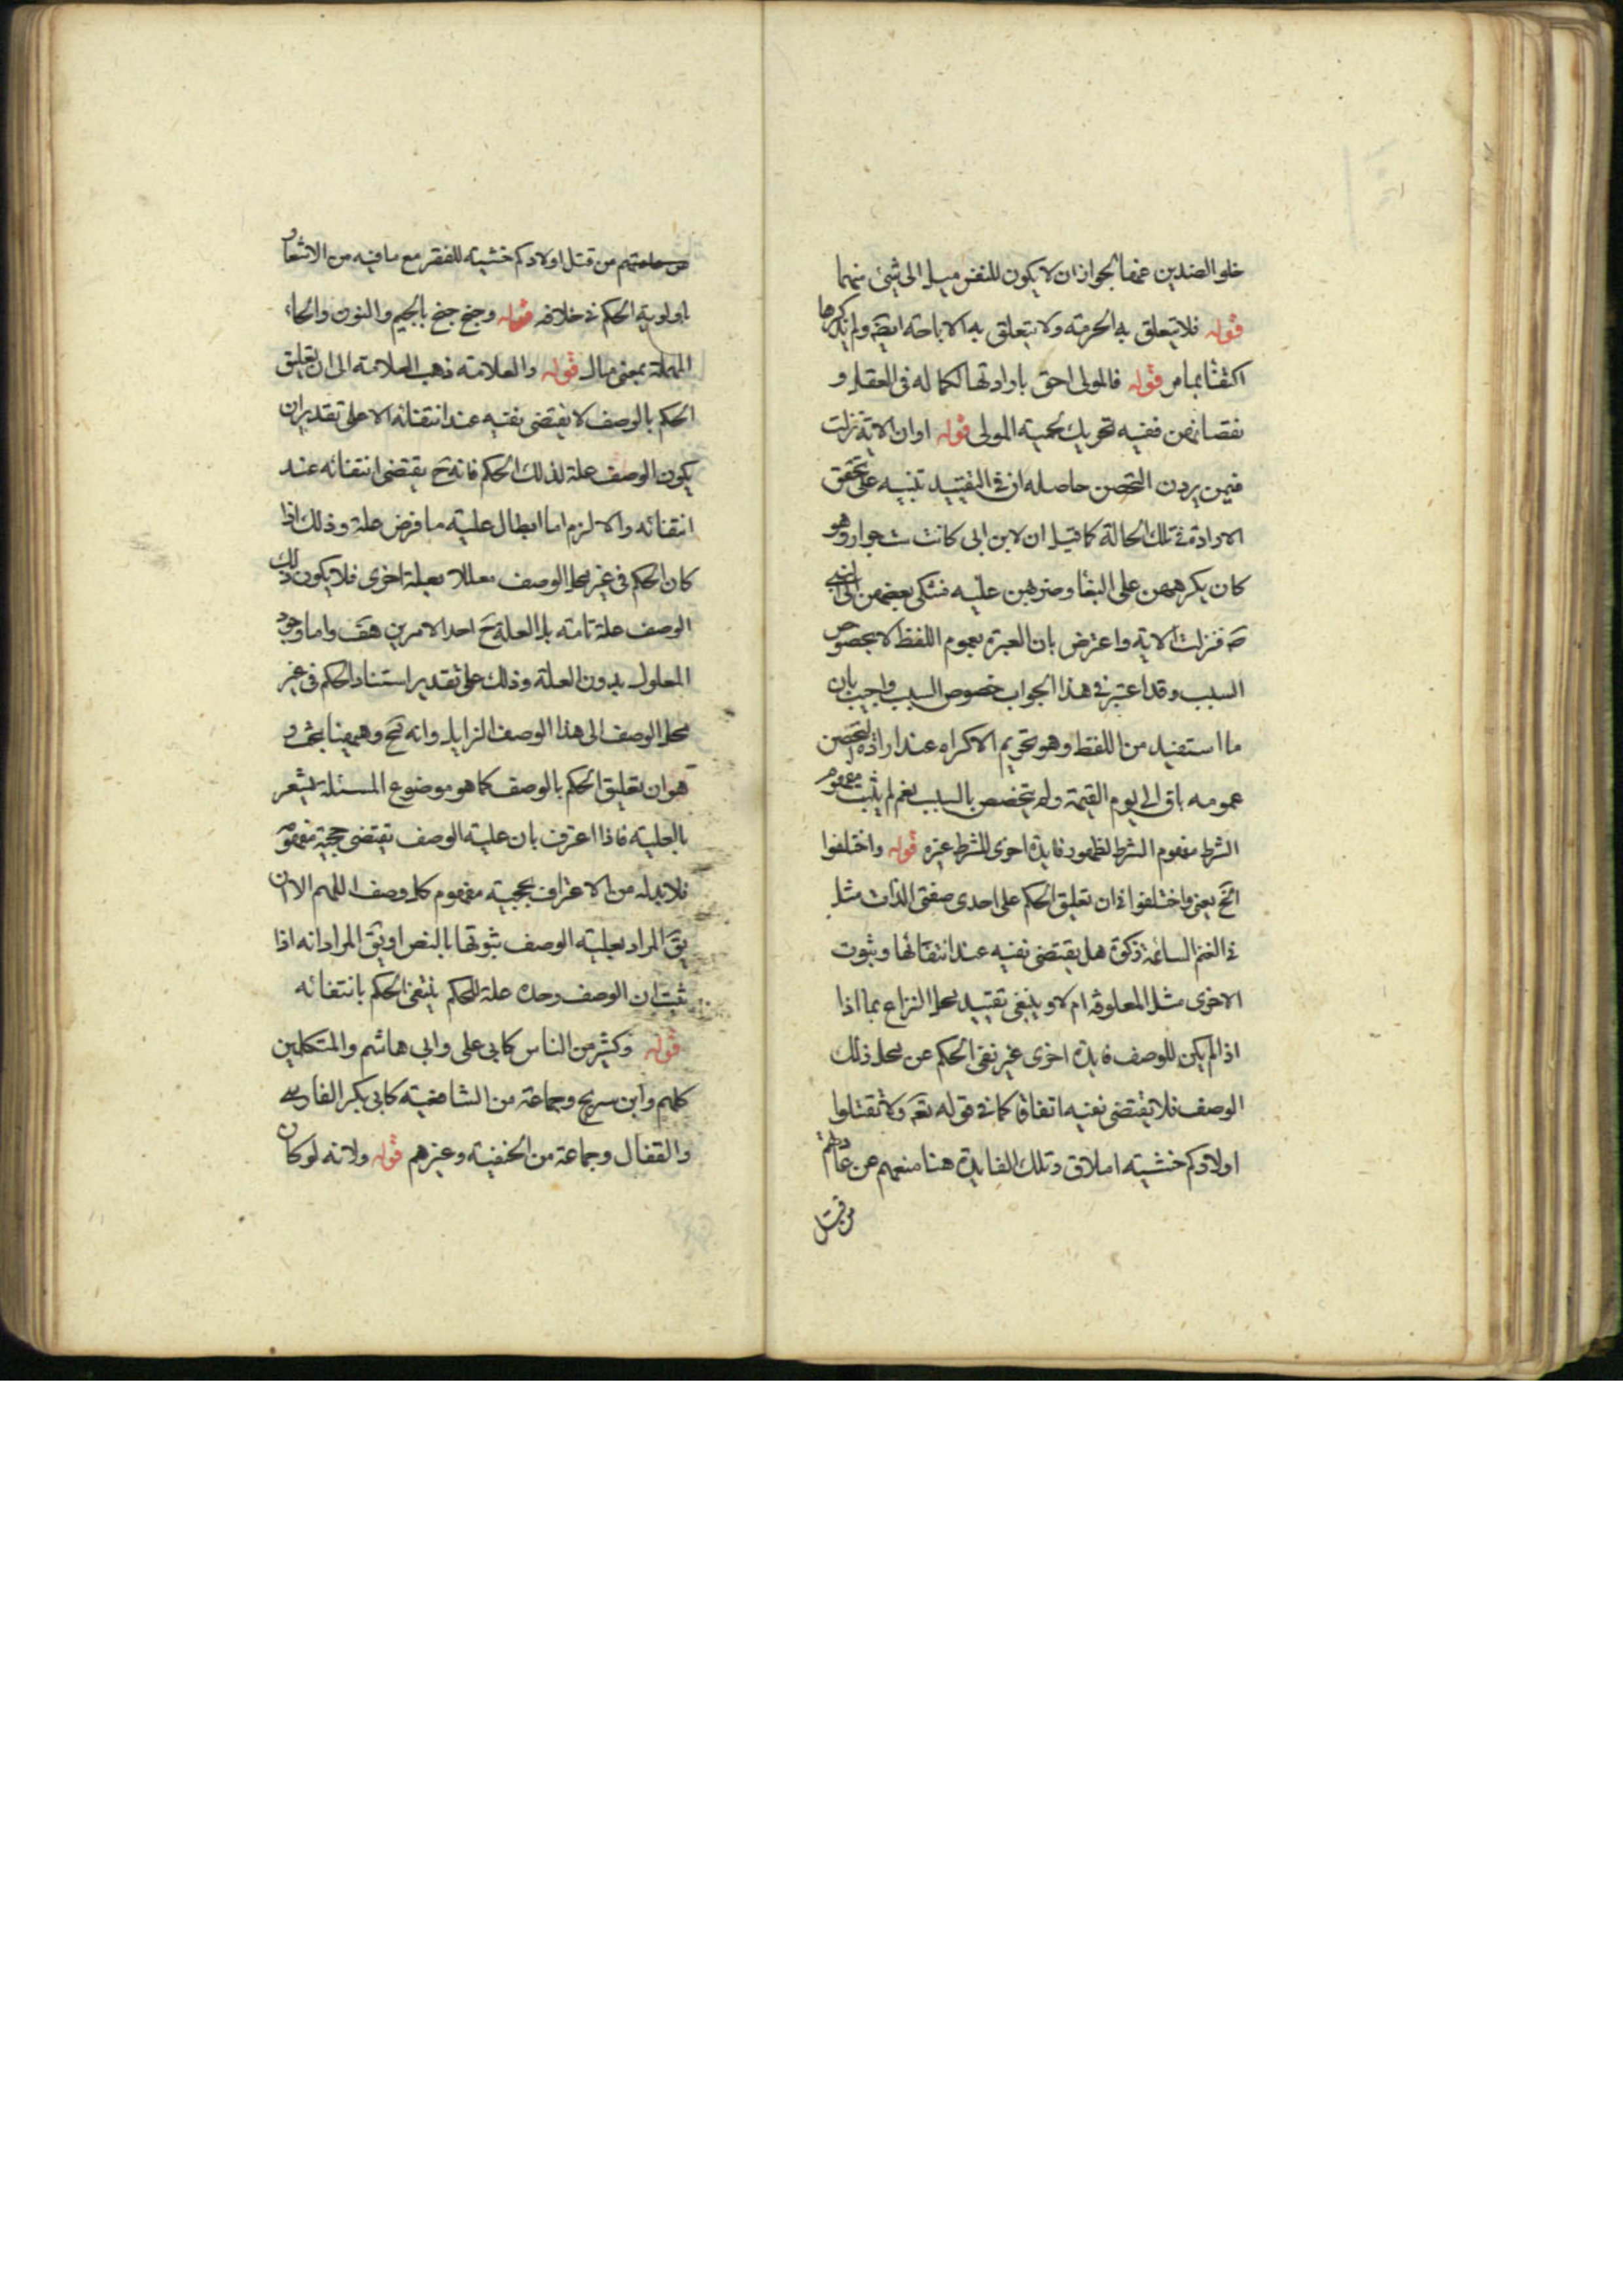 خلو الضدين عنها لجواز ان لا يكون للنفس ميل الى شئ منهما
قوله فلا يتعلق به الحرمة ولا يتعلق به الاباحة ايضَ ولم يذكرها
اكتفاء بما مر قوله فالمولى احق بارادتها لكماله فى العقل و
نقصانهن ففيه تحريك لحمية المولى قوله او ان الاية نزلت
فيمن يردن التحصن حاصله ان فى التقييد تنبيه على تحقق
الارادة فى تلك الحالة كما قيل ان لابن ابى كانت ست جوار وهو
كان يكرههن على البغا وضربهن عليه فشكى بعضهن الى النبى
صَ فنزلت الاية واعترض بان العبرة بعموم اللفظ لا بخصوص
السبب وقد اعتبر فى هذا الجواب خصوص السبب واجيب بان
ما استفيد من اللفظ وهو تحريم الاكراه عند ارادة التحصن
عمومه باق الى يوم القيمة ولم يتخصص بالسبب نعم لم يثبت مفهوم
الشرط مفهوم الشرط لظهور فايدة اخرى للشرط غيره قوله واختلفوا
الخ يعنى واختلفوا فى ان تعليق الحكم على احدى صفتى الذات مثل
فى الغنم السائمة زكوة هل يقتضى نفيه عند انتفائها وثبوت
الاخرى مثل المعلوفة ام لا وينبغى تقييد محل النزاع بما اذا
اذا لم يكن للوصف فايدة اخرى غير نفى الحكم عن محل ذلك
الوصف فلا يقتضى نفيه اتفاقا كما فى قوله تعَ ولا تقتلوا
اولادكم خشية املاق وتلك الفايدة هنا منعهم عن عادتهم
من قتل
من قتل اولادكم خشية للفقر مع ما فيه من الاشعار
باولوية الحكم فى خلافه قوله وجنح جنح بالجيم والنون والحاء
المهملة بمعنى مال قوله والعلامة ذهب العلامة الى ان تعليق
الحكم بالوصف لا يقتضى نفيه عند انتفائه الا على تقدير ان
يكون الوصف علة لذلك الحكم فانه حَ يقتضى انتفائه عند
انتفائه والا لزم اما ابطال علية ما فرض علة وذلك اذا
كان الحكم فى غير محل الوصف معللا بعلة اخرى فلا يكون ذلك
الوصف علة تامة بل العلة حَ احد الامرين هف واما وجود
المعلول بدون العلة وذلك على تقدير استناد الحكم فى غير
محل الوصف الى هذا الوصف الزايل وانه مح وههنا بحث و
هو ان تعليق الحكم بالوصف كما هو موضوع المسئلة يشعر
بالعلية فاذا اعترف بان علية الوصف تقتضى حجية مفهومه
فلا بد له من الاعتراف بحجية مفهوم كل وصف اللهم الا ان
يقَ المراد بعلية الوصف ثبوتها بالنص او يقَ المراد انه اذا
ثبت ان الوصف وحده علة للحكم ينتفى الحكم بانتفائه
قوله وكثير من الناس كابى على وابى هاشم والمتكلمين
كلهم وابن سريج وجماعة من الشافعية كابى بكر الفارسى
والقفال وجماعة من الحنفية وغيرهم قوله ولانه لو كان